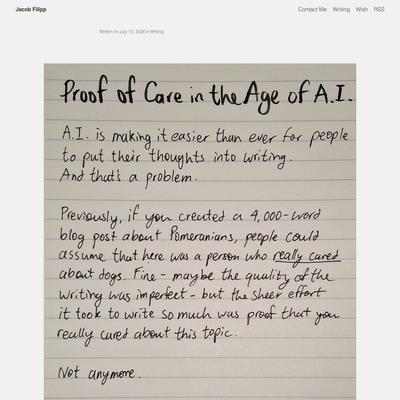 Jacob Filipp
Contact Me Writing Wish RSS
Written on July 13, 2026 in Writing
Proof of Care in the Age of A.I.
A.I. is making it easier than ever for people
to put their thoughts into writing.
And that's a problem.
Previously, if you created a 4,000-word
blog post about Pomeranians, people could
assume that here was a person who really cared
about dogs. Fine - maybe the quality of the
writing was imperfect - but the sheer effort
it took to write so much was proof that you
really cared about this topic.
Not anymore.